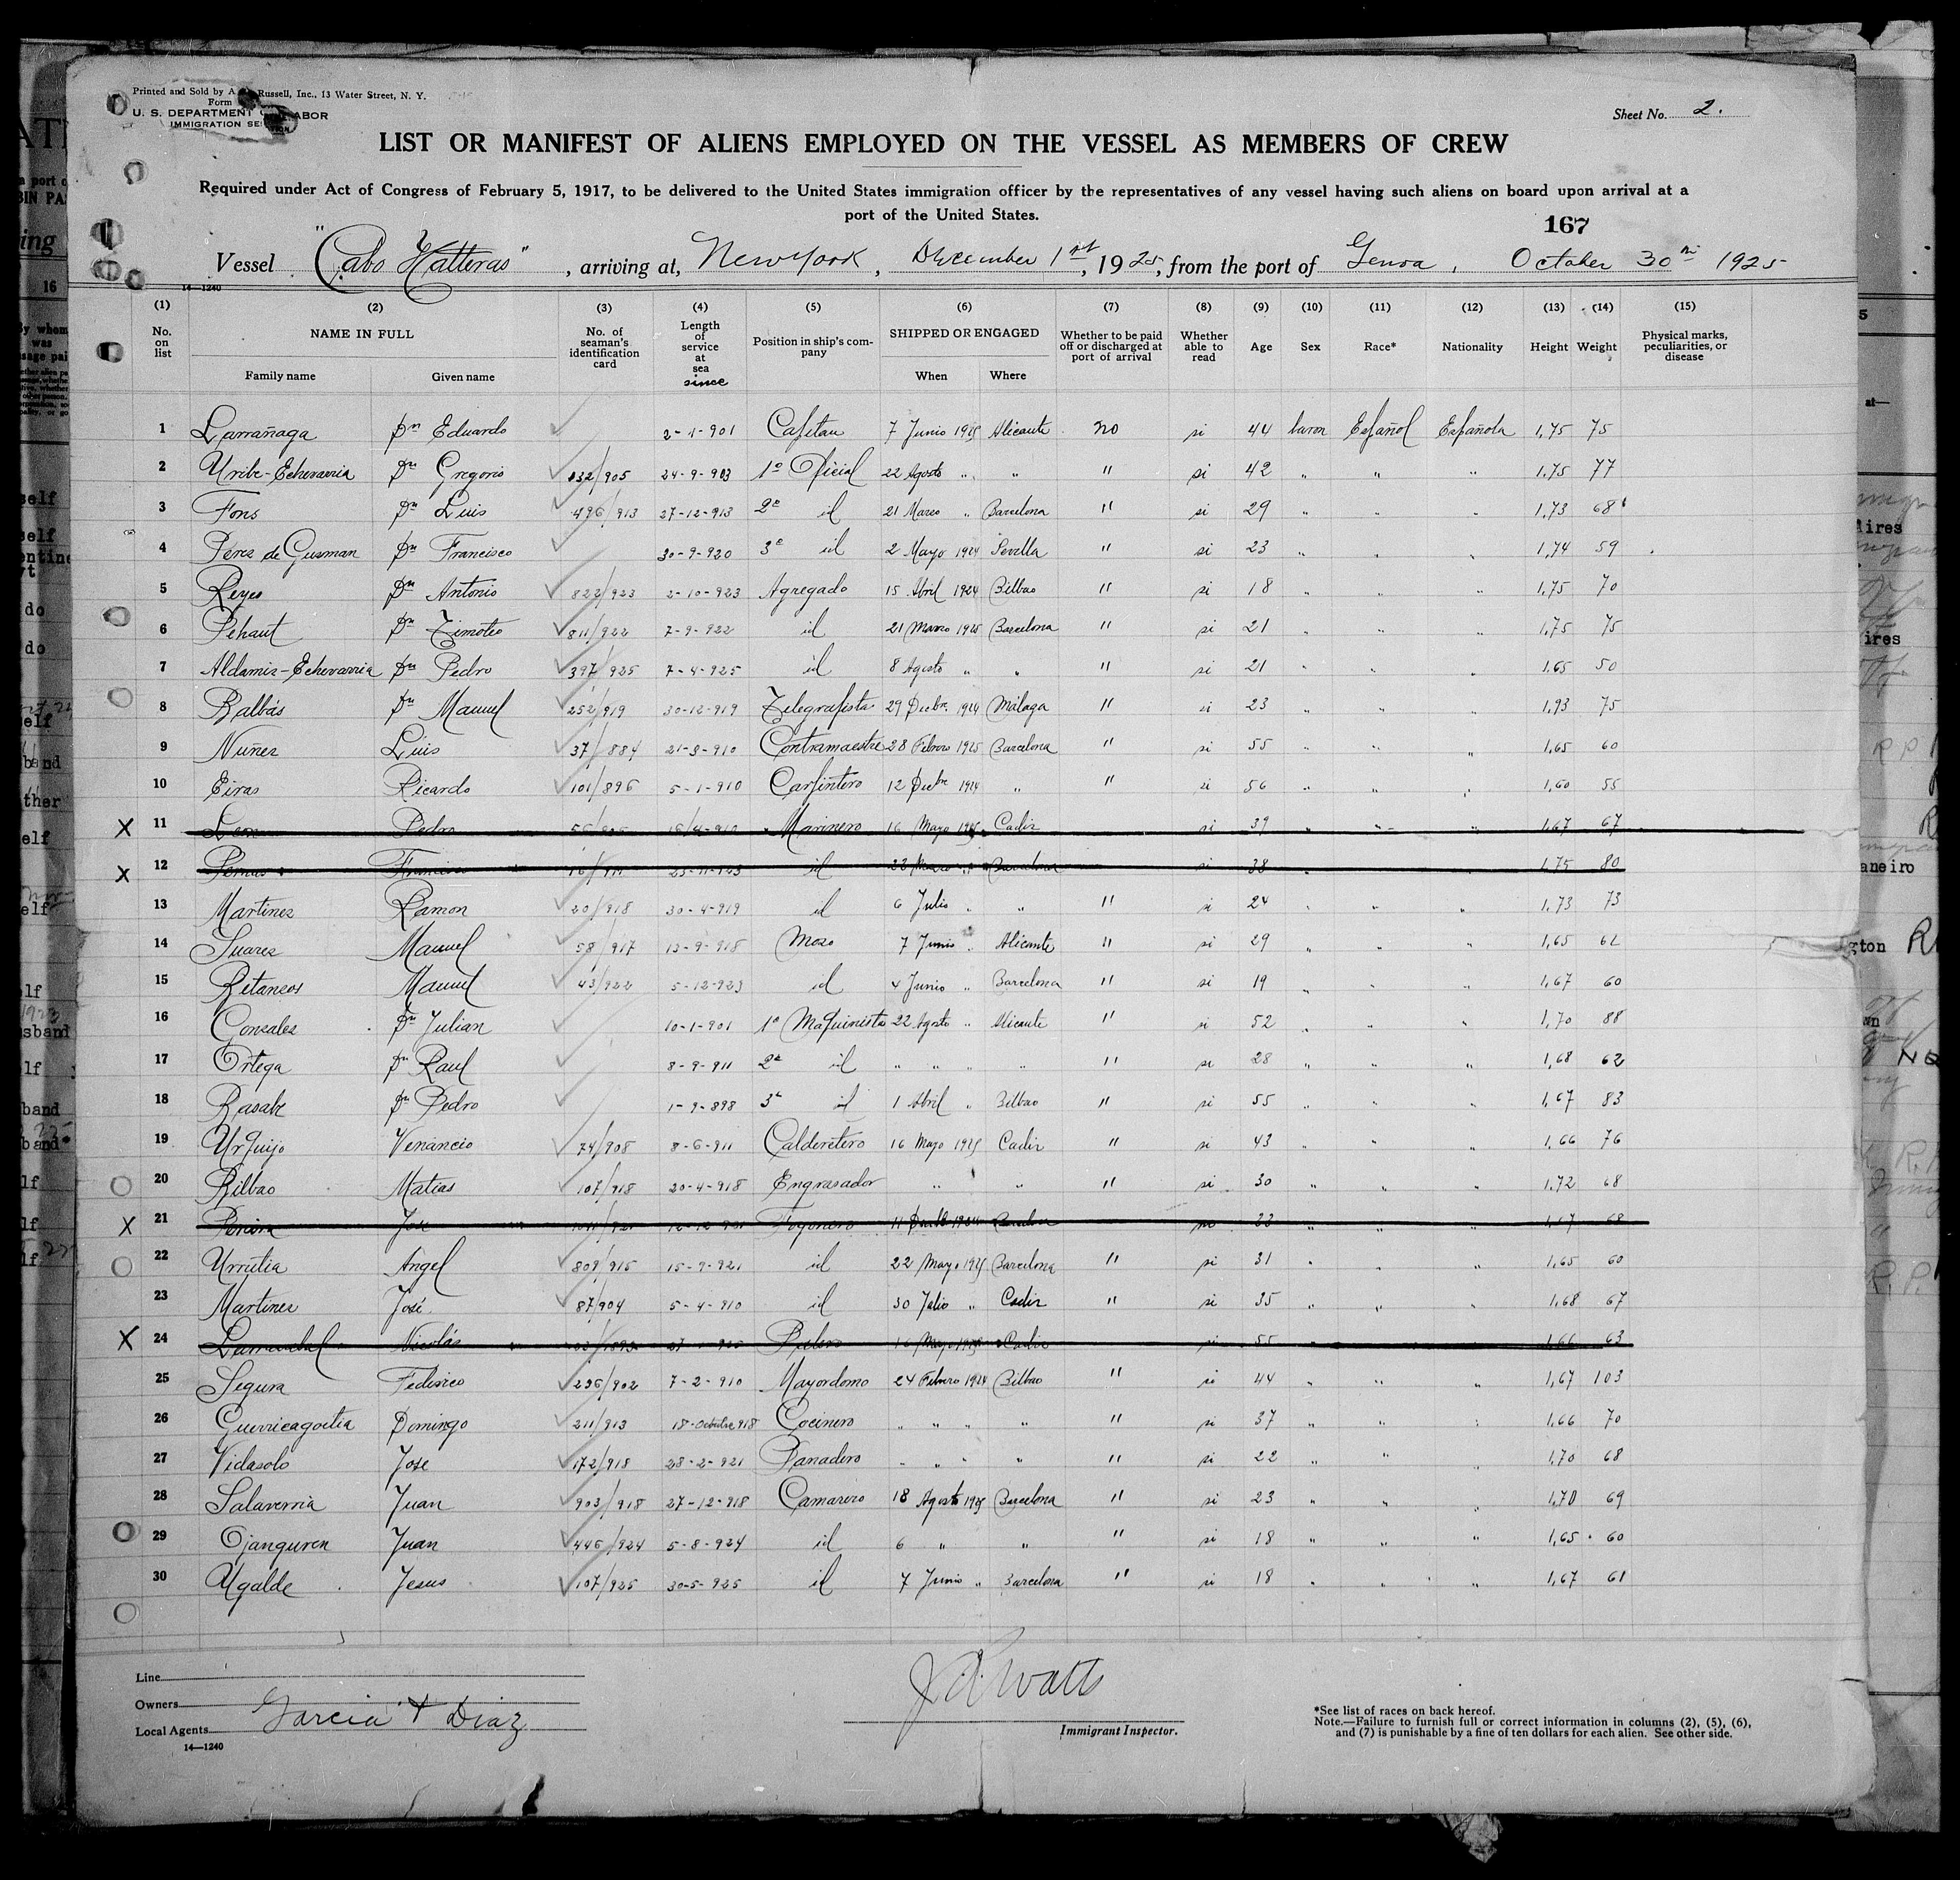 Printed and Sold by A. Russell, Inc., 13 Water Street, N. Y.
Form
U. S. DEPARTMENT LABOR
IMMIGRATION
Sheet No. 2.
LIST OR MANIFEST OF ALIENS EMPLOYED ON THE VESSEL AS MEMBERS OF CREW
Required under Act of Congress of February 5, 1917, to be delivered to the United States immigration officer by the representatives of any vessel having such aliens on board upon arrival at a
port of the United States.
167
Vessel "Cabo Hatteras", arriving at, New York, December 1st, 1925, from the port of Genoa, October 30th 1925
14—1240
(1) (2) (3) (4) (5) (6) (7) (8) (9) (10) (11) (12) (13) (14) (15)
No. on list NAME IN FULL Family name Given name No. of seaman's identification card Length of service at sea since Position in ship's company SHIPPED OR ENGAGED When Where Whether to be paid off or discharged at port of arrival Whether able to read Age Sex Race* Nationality Height Weight Physical marks, peculiarities, or disease
1 Larrañaga Dn Eduardo 2-1-901 Capitan 7 Junio 1925 Alicante no si 44 baron Español Española 1,75 75
2 Uribe-Echevarria Dn Gregorio 132/905 24-9-903 1º Oficial 22 Agosto " " " si 42 " " " 1,75 77
3 Fons Dn Luis 496/913 27-12-913 2º id 21 Marzo " Barcelona " si 29 " " " 1,73 68
4 Perez de Gusman Dn Francisco 30-9-920 3º id 2 Mayo 1924 Sevilla " si 23 " " " 1,74 59
5 Reyes Dn Antonio 822/923 2-10-923 Agregado 15 Abril 1924 Bilbao " si 18 " " " 1,75 70
6 Pehaut Dn Timoteo 811/922 7-9-922 id 21 Marzo 1925 Barcelona " si 21 " " " 1,75 75
7 Aldamiz-Echevarria Dn Pedro 397/925 7-4-925 id 8 Agosto " " " si 21 " " " 1,65 50
8 Balbás Dn Manuel 252/919 30-12-919 Telegrafista 29 Dicbre 1924 Málaga " si 23 " " " 1,93 75
9 Nuñez Luis 37/884 21-3-910 Contramaestre 28 Febrero 1925 Barcelona " si 55 " " " 1,65 60
10 Eiras Ricardo 101/896 5-1-910 Carpintero 12 Dicbre 1924 " " si 56 " " " 1,60 55
X 11 Leon Pedro Marinero 16 Mayo 1925 Cadiz si 39 " " " 1,67 67
X 12 Francisco id 22 Marzo " Barcelona si 38 1,75 80
13 Martinez Ramon 20/918 30-4-919 id 6 Julio " " " si 24 " " " 1,73 73
14 Suarez Manuel 58/917 13-9-918 Mozo 7 Junio " Alicante " si 29 " " " 1,65 62
15 Betanzos Manuel 43/922 5-12-923 id 4 Junio " Barcelona " si 19 " " " 1,67 60
16 Gonzalez Dn Julian 10-1-901 1º Maquinista 22 Agosto " Alicante " si 52 " " " 1,70 88
17 Ortega Dn Raul 8-9-911 2º id " " " " " si 28 " " " 1,68 62
18 Basabe Dn Pedro 1-9-898 3º id 1 Abril " Bilbao " si 55 " " " 1,67 83
19 Urquijo Venancio 74/908 8-6-911 Calderetero 16 Mayo 1925 Cadiz " si 43 " " " 1,66 76
20 Bilbao Matias 107/918 20-4-918 Engrasador " " " si 30 " " " 1,72 68
X 21 Jose Fogonero 11 1924 33 " " " 1,67 68
22 Urrutia Angel 809/915 15-9-921 id 22 Mayo 1925 Barcelona " si 31 " " " 1,65 60
23 Martinez José 87/904 5-4-910 id 30 Julio " Cadiz " si 35 " " " 1,68 67
X 24 Nicolás 16 Mayo 1925 Cadiz si 55 1,66 63
25 Segura Federico 236/902 7-2-910 Mayordomo 24 Febrero 1924 Bilbao " si 44 " " " 1,67 103
26 Guerricagoitia Domingo 211/913 18-Octubre 918 Cocinero " " " " " si 37 " " " 1,66 70
27 Vidasolo Jose 172/918 28-2-921 Panadero " " " " " si 22 " " " 1,70 68
28 Salaverria Juan 903/918 27-12-918 Camarero 18 Agosto 1925 Barcelona " si 23 " " " 1,70 69
29 Ojanguren Juan 446/924 5-8-924 id 6 " " " si 18 " " " 1,65 60
30 Ugalde Jesus 107/925 30-5-925 id 7 Junio " Barcelona " si 18 " " " 1,67 61
Line
Owners
Local Agents Garcia & Diaz
14—1240
J. A. Watts
Immigrant Inspector.
*See list of races on back hereof.
Note.—Failure to furnish full or correct information in columns (2), (5), (6),
and (7) is punishable by a fine of ten dollars for each alien. See other side.